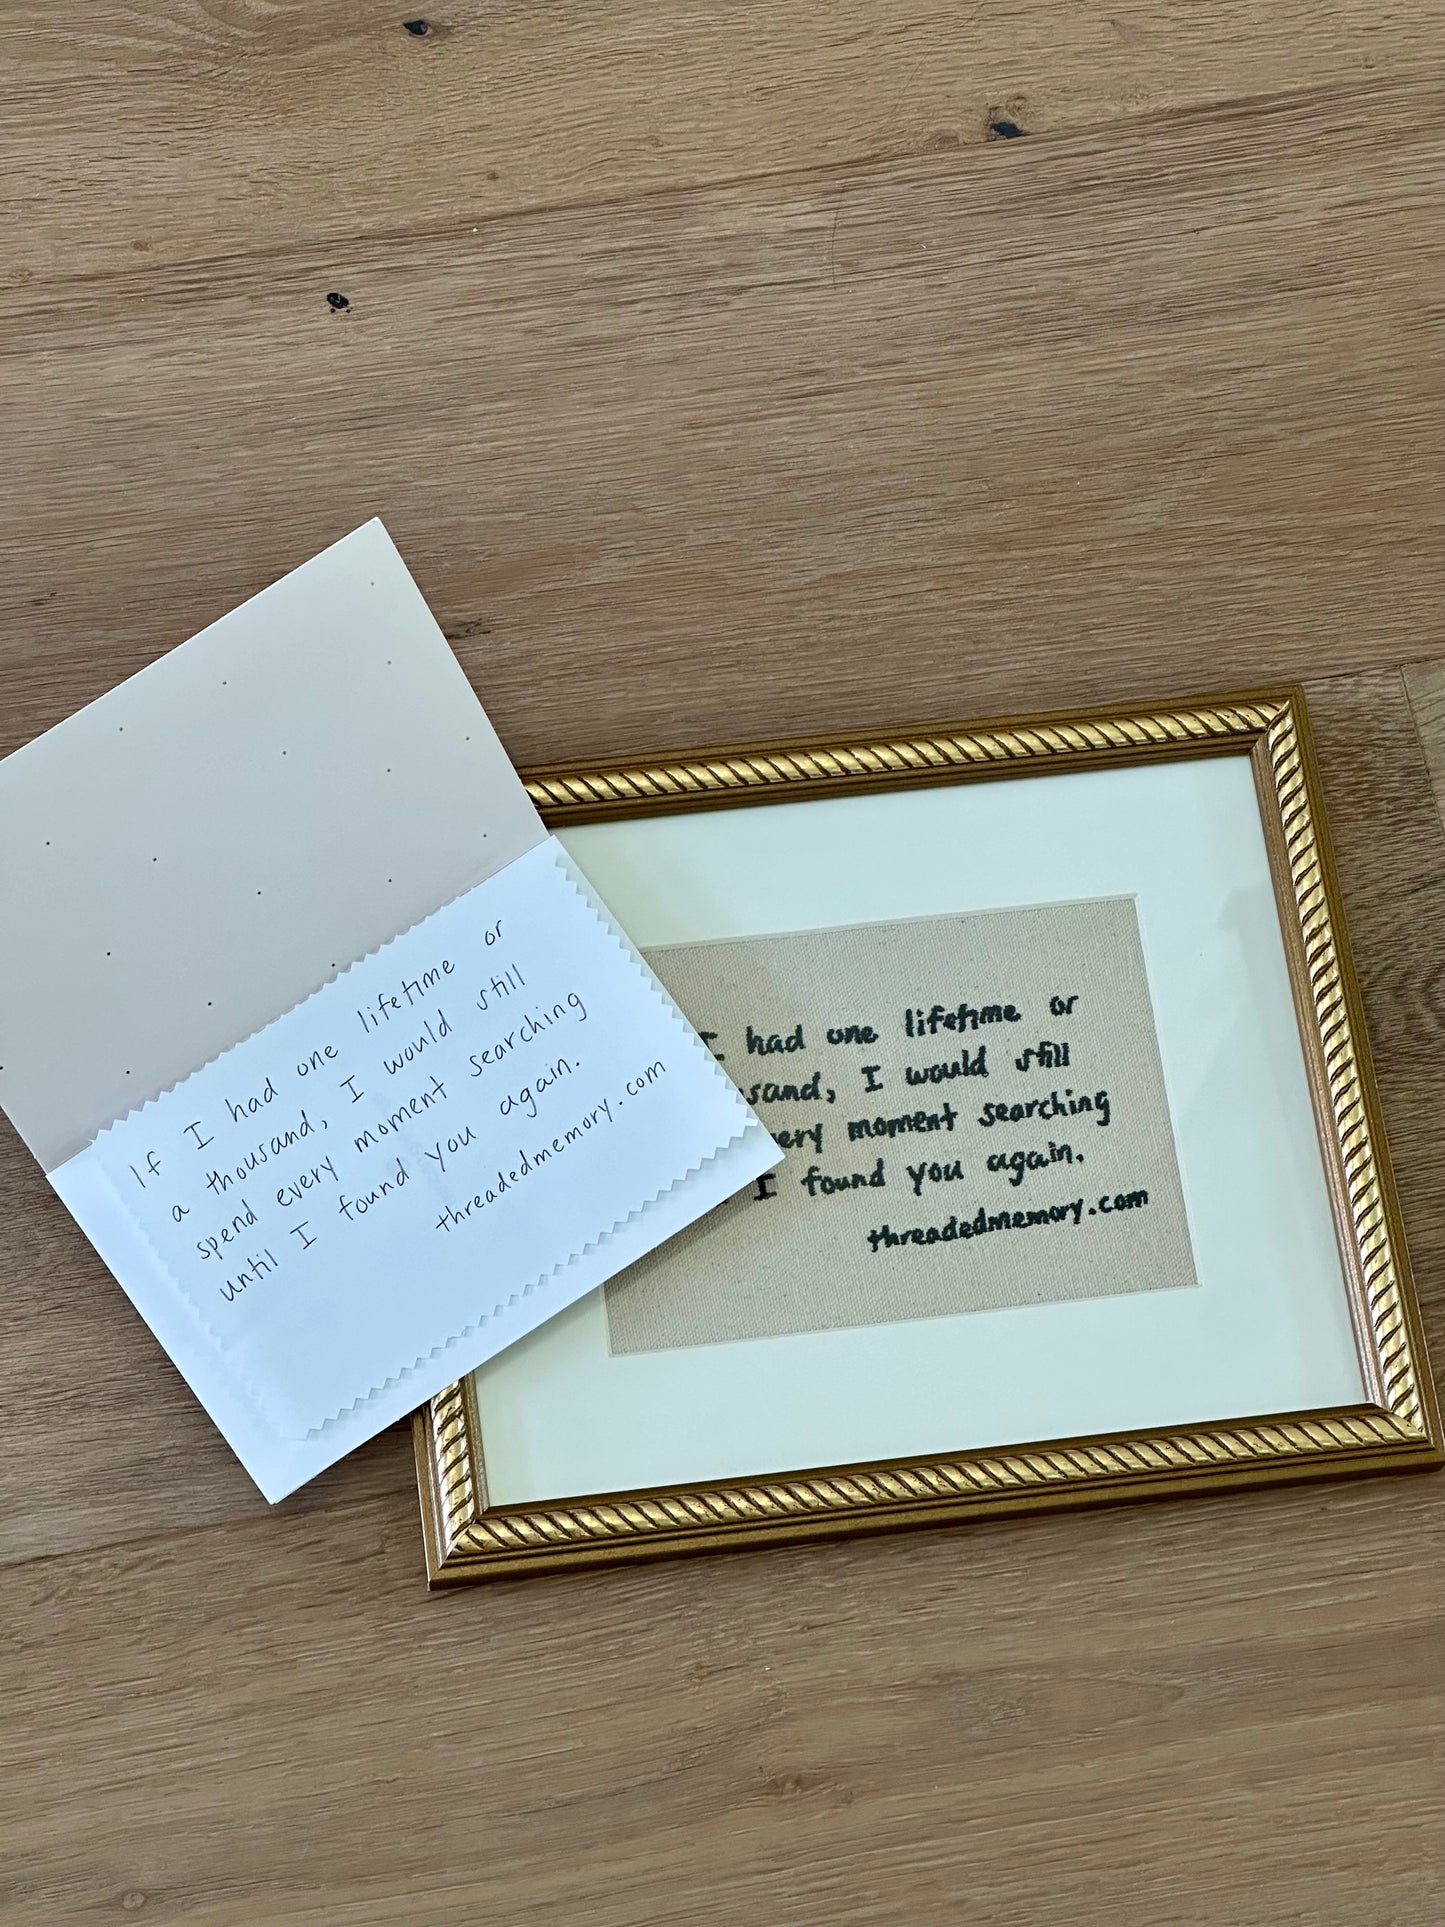 If I had one lifetime or
a thousand, I would still
spend every moment searching
until I found you again.
threadedmemory.com
I had one lifetime or
usand, I would still
ery moment searching
I found you again.
threadedmemory.com